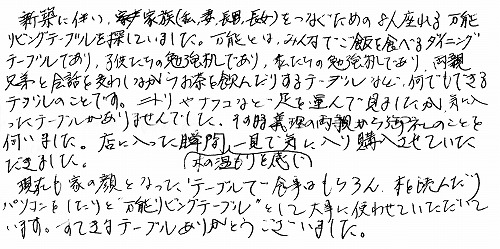 新築に伴い、家族(私、妻、長男、長女)をつなぐための8人座れる万能
リビングテーブルを探していました。万能とは、みんなでご飯を食べるダイニング
テーブルであり、子供たちの勉強机であり、私たちの勉強机であり、両親
兄弟と会話を交わしながらお茶を飲んだりするテーブルなど、何でもできる
テーブルのことです。ニトリやナフコなど足を運んで見ましたが、気に入
ったテーブルがありませんでした。その時義理の両親から御社のことを
伺いました。店に入った瞬間、一見で気に入り購入させていた
だきました。(木の温かりを感じ)
現在も家の顔となった"テーブルで食事はもちろん、本を読んだり
パソコンをしたりと"万能リビングテーブル"として大事に使わせていただいて
います。すてきなテーブルありがとうございました。